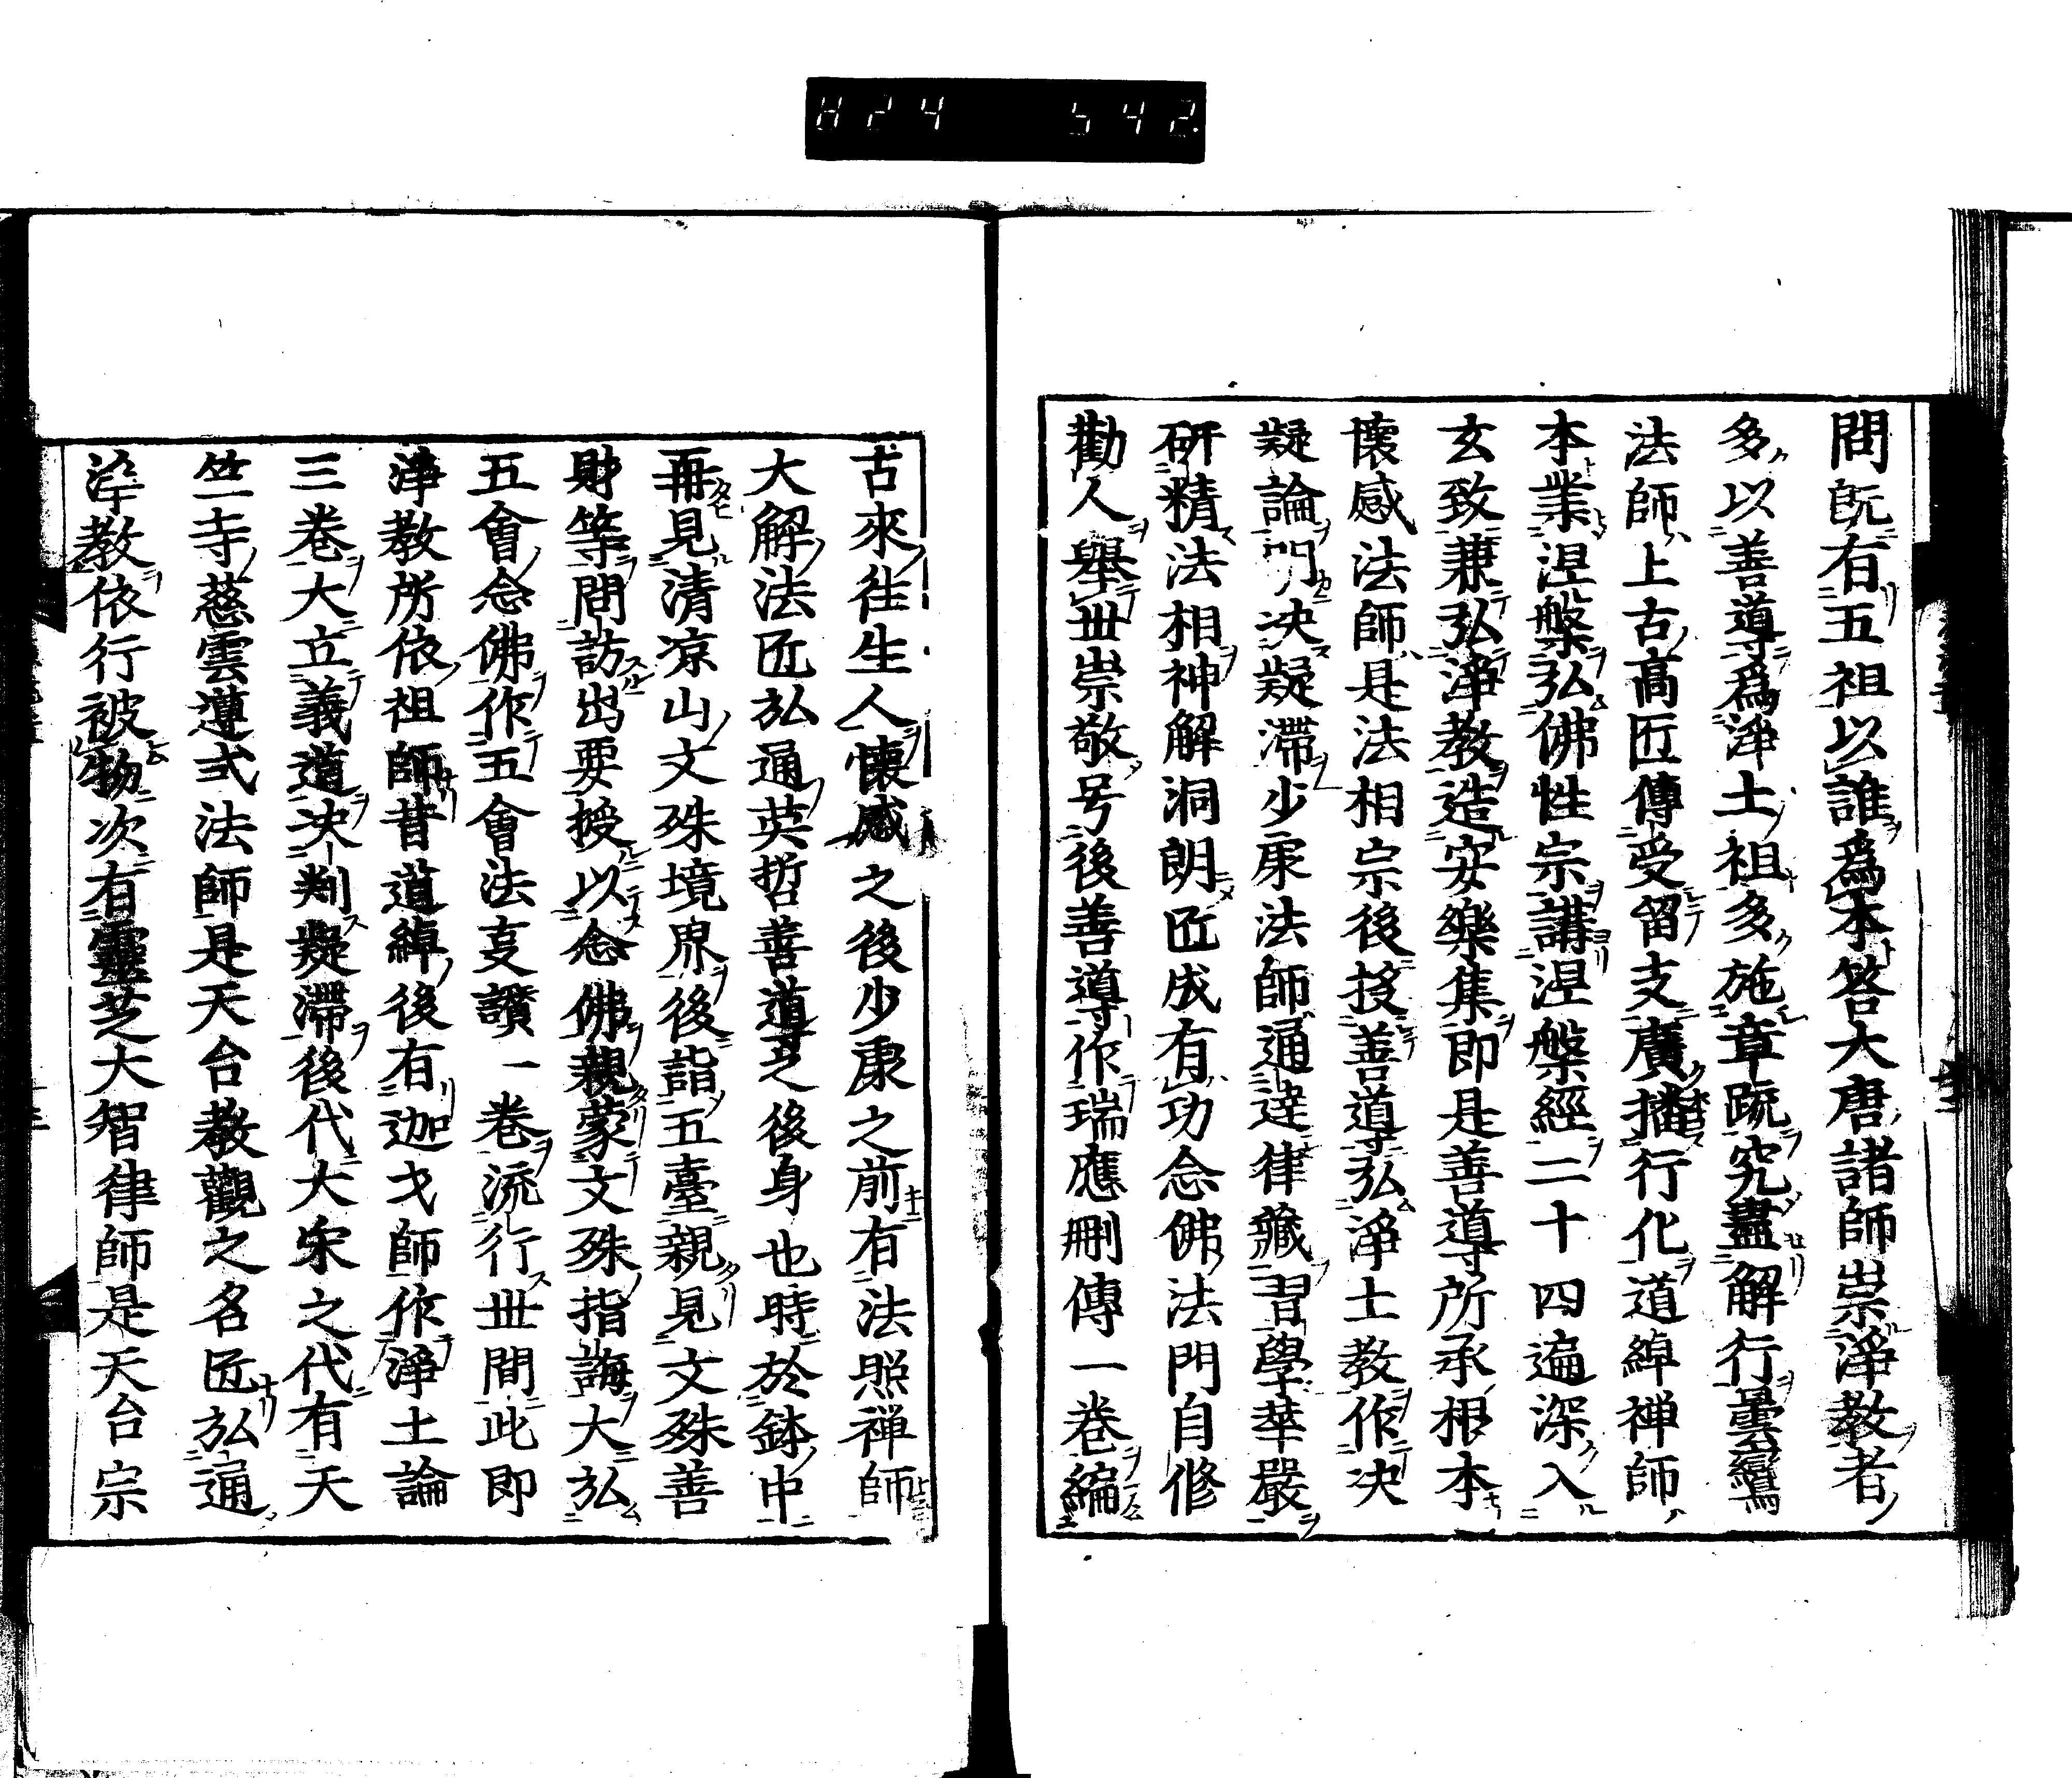 824 542
問既有五祖以誰爲本答大唐諸師崇淨教者
多以善導爲淨土祖多施章疏究盡解行曇鸞
法師上古高匠傳受留支廣播行化道綽禅師
本業涅槃弘佛性宗講涅槃經二十四遍深入
玄致兼弘淨教造安樂集即是善導所承根本
懷感法師是法相宗後投善導弘淨土教作決
疑論明決疑滯少康法師通達律藏習學華嚴
研精法相神解洞朗匠成有功念佛法門自修
勸人舉丗崇敬号後善導作瑞應刪傳一巻編
古來往生人懷感之後少康之前有法照禅師
大解法匠弘通英哲善導之後身也時於鉢中
再見清凉山文殊境界後詣五臺親見文殊善
財等問訪出要授以念佛親蒙文殊指誨大弘
五會念佛作五會法叓讃一巻流行丗間此即
淨教所依祖師昔道綽後有迦才師作淨土論
三巻大立義道決判疑滯後代大宋之代有天
竺寺慈雲遵式法師是天台教觀之名匠弘通
淨教依行被物次有靈芝大智律師是天台宗